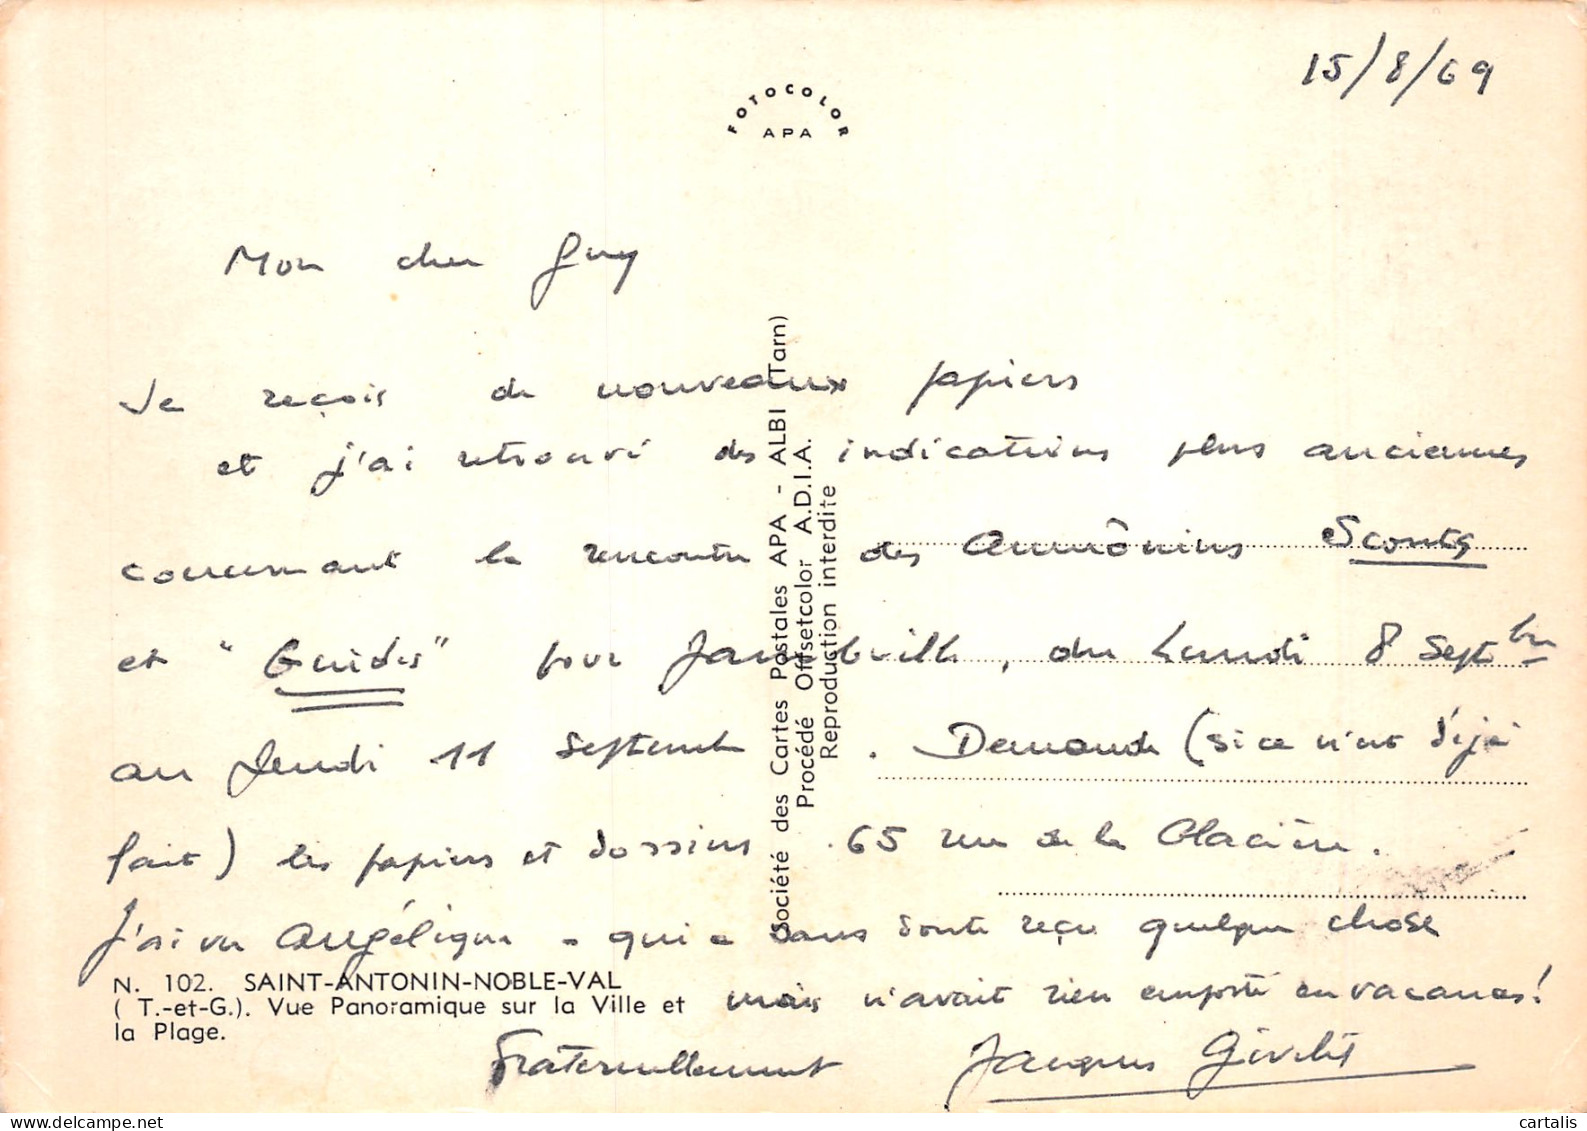 15/8/69
FOTOCOLOR
APA
Mon cher Guy
Je reçois de nouveaux papiers
et j'ai retrouvé des indications plus anciennes
concernant la rencontre des Aumôniers Scouts
et "Guides" pour Jambville, du Lundi 8 Septbre
au Jeudi 11 Septembre. Demande (si ce n'est déjà
fait) les papiers et dossiers 65 rue de la Glacière.
J'ai vu Angélique - qui a sans doute reçu quelque chose
mais n'avait rien emporté en vacances!
Fraternellement Jacques
Société des Cartes Postales APA - ALBI (Tarn)
Procédé Offsetcolor A.D.I.A.
Reproduction interdite
N. 102. SAINT-ANTONIN-NOBLE-VAL
( T.-et-G.). Vue Panoramique sur la Ville et
la Plage.
cartalis